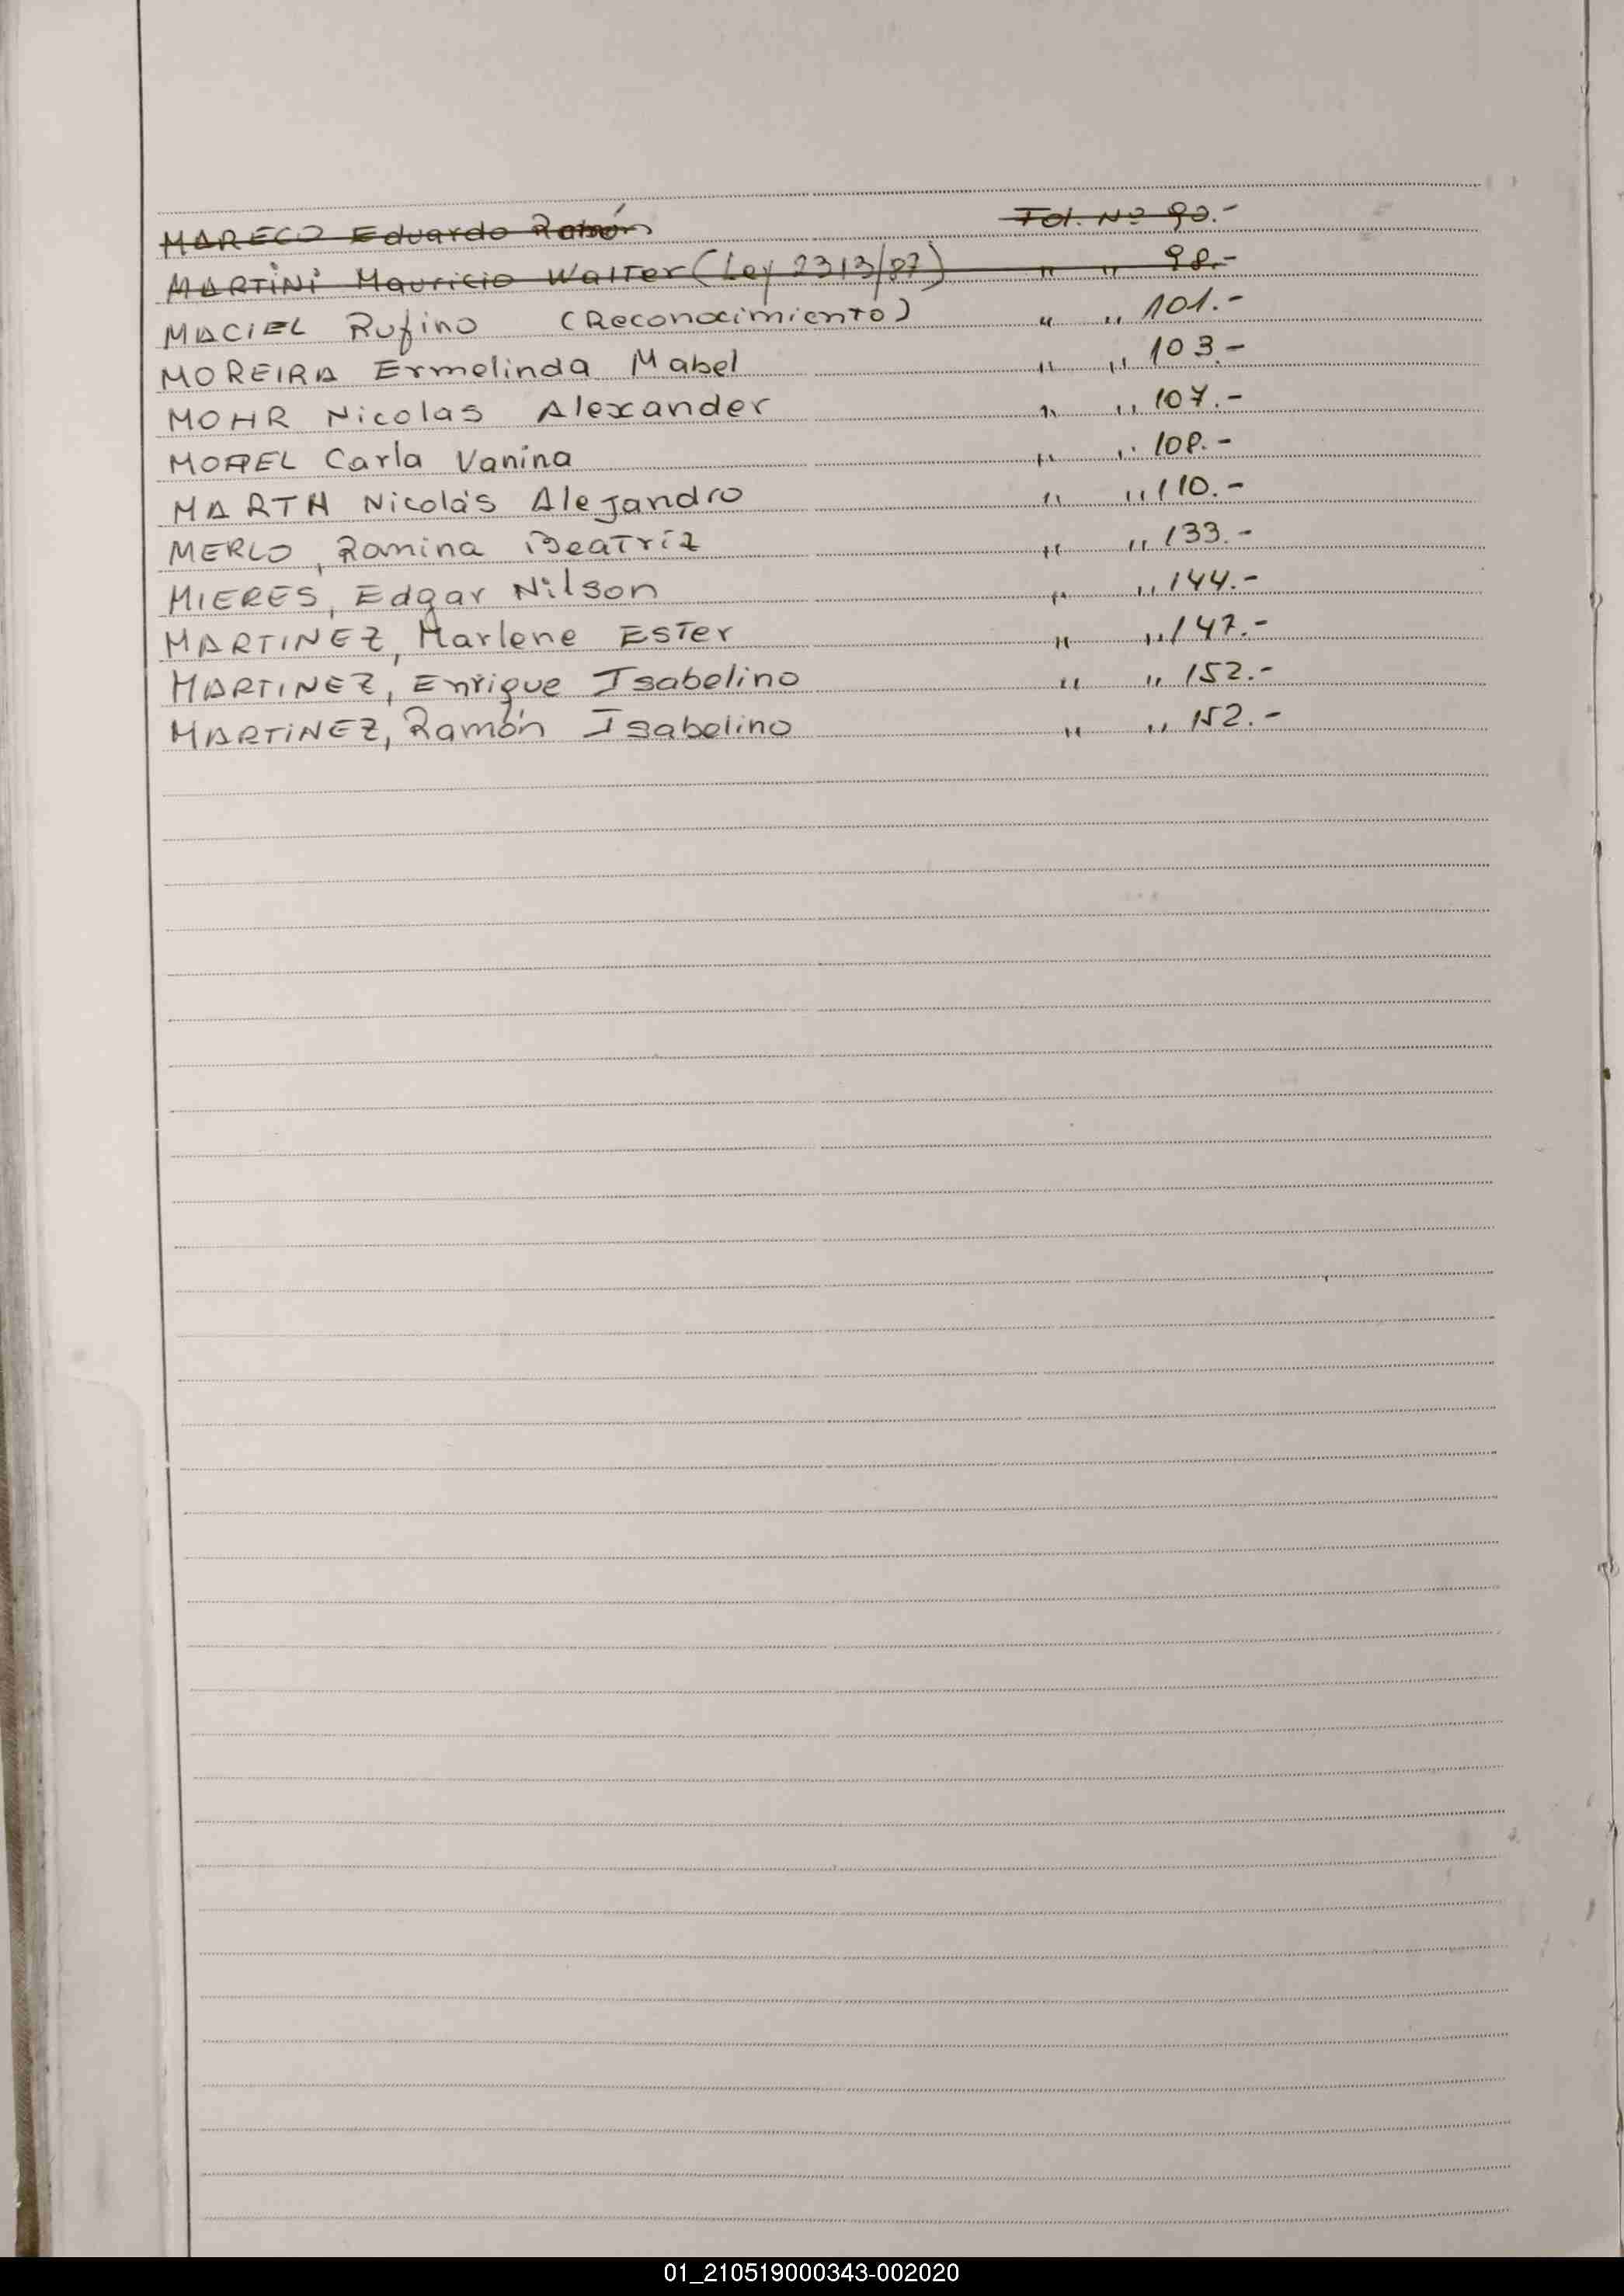 MARECO Eduardo Ramón Fol. Nº 90.-
MARTiNi Mauricio Walter (Ley 2313/87) " " 98.-
MACIEL Rufino (Reconocimiento) " " 101.-
MOREIRA Ermelinda Mabel " " 103.-
MOHR Nicolas Alexander " " 107.-
MOREL Carla Vanina " " 108.-
MARTH Nicolás Alejandro " " 110.-
MERLO, Romina Beatriz " " 133.-
MIERES, Edgar Nilson " " 144.-
MARTINEZ, Marlene Ester " " 147.-
MARTINEZ, Enrique Isabelino " " 152.-
MARTiNEZ, Ramón Isabelino " " 152.-
01_210519000343-002020